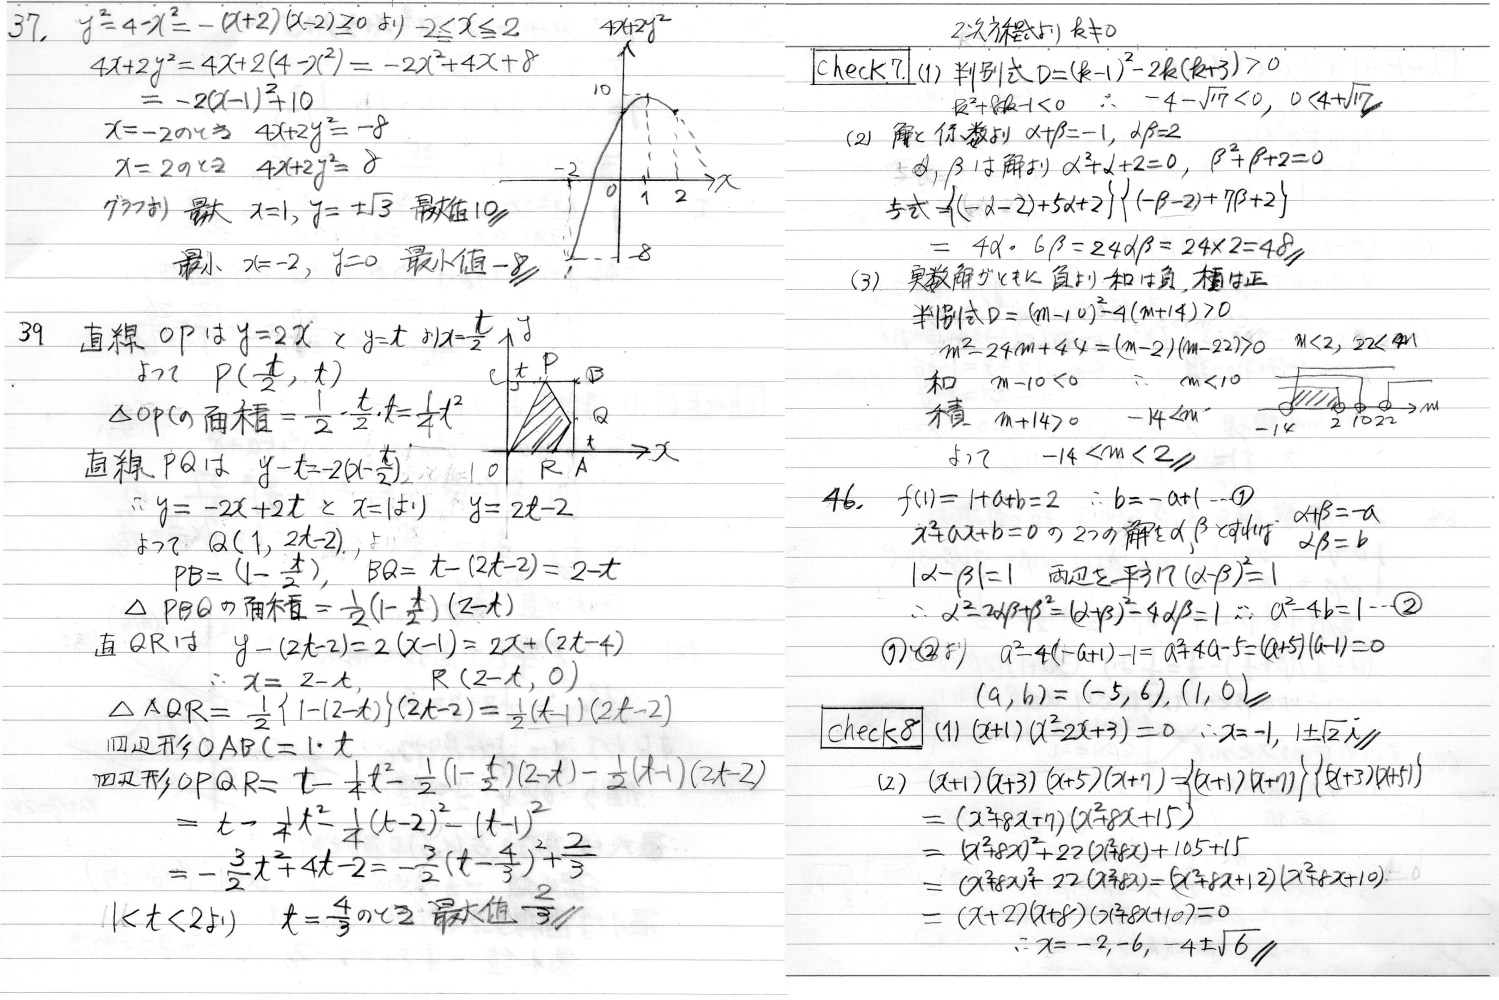 37. y²=4-x²=-(x+2)(x-2)≧0より -2≦x≦2
4x+2y²=4x+2(4-x²)=-2x²+4x+8
=-2(x-1)²+10
x=-2のとき 4x+2y²=-8
x=2のとき 4x+2y²=8
グラフより 最大 x=1, y=±√3 最大値10
最小 x=-2, y=0 最小値-8
4x+2y²
10
-2
0
1
2
x
-8
39 直線OPはy=2xとy=tよりx=t/2
よって P(t/2, t)
△OPCの面積=1/2・t/2・t=1/4t²
直線PQは y-t=-2(x-t/2)
∴y=-2x+2tとx=1より y=2t-2
よって Q(1, 2t-2),より
PB=(1-t/2), BQ=t-(2t-2)=2-t
△PBQの面積=1/2(1-t/2)(2-t)
直QRは y-(2t-2)=2(x-1)=2x+(2t-4)
∴x=2-t, R(2-t, 0)
△AQR=1/2{1-(2-t)}(2t-2)=1/2(t-1)(2t-2)
四辺形OABC=1・t
四辺形OPQR=t-1/4t²-1/2(1-t/2)(2-t)-1/2(t-1)(2t-2)
=t-1/4t²-1/4(t-2)²-(t-1)²
=-3/2t²+4t-2=-3/2(t-4/3)²+2/3
1<t<2より t=4/3のとき 最大値 2/3
y
C
t
P
B
Q
t
x
0
R
A
2次方程式より k≠0
Check7. (1) 判別式D=(k-1)²-2k(k+3)>0
k²+8k-1<0 ∴ -4-√17<0, 0<4+√17
(2) 解と係数より α+β=-1, αβ=2
α, βは解より α²+α+2=0, β²+β+2=0
与式={(-α-2)+5α+2}{(-β-2)+7β+2}
=4α・6β=24αβ=24×2=48
(3) 実数解がともに負より和は負,積は正
判別式D=(m-10)²-4(m+14)>0
m²-24m+44=(m-2)(m-22)>0 m<2, 22<m
和 m-10<0 ∴ m<10
積 m+14>0 -14<m
よって -14<m<2
-14
2
10
22
m
46. f(1)=1+a+b=2 ∴b=-a+1…①
x²+ax+b=0の2つの解をα,βとすれば α+β=-a
αβ=b
|α-β|=1 両辺を平方して(α-β)²=1
∴α²-2αβ+β²=(α+β)²-4αβ=1 ∴a²-4b=1…②
①と②より a²-4(-a+1)-1=a²+4a-5=(a+5)(a-1)=0
(a, b)=(-5, 6), (1, 0)
Check8 (1) (x+1)(x²-2x+3)=0 ∴x=-1, 1±√2i
(2) (x+1)(x+3)(x+5)(x+7)={(x+1)(x+7)}{(x+3)(x+5)}
=(x²+8x+7)(x²+8x+15)
=(x²+8x)²+22(x²+8x)+105+15
=(x²+8x)²+22(x²+8x)=(x²+8x+12)(x²+8x+10)
=(x+2)(x+8)(x²+8x+10)=0
∴x=-2,-6, -4±√6